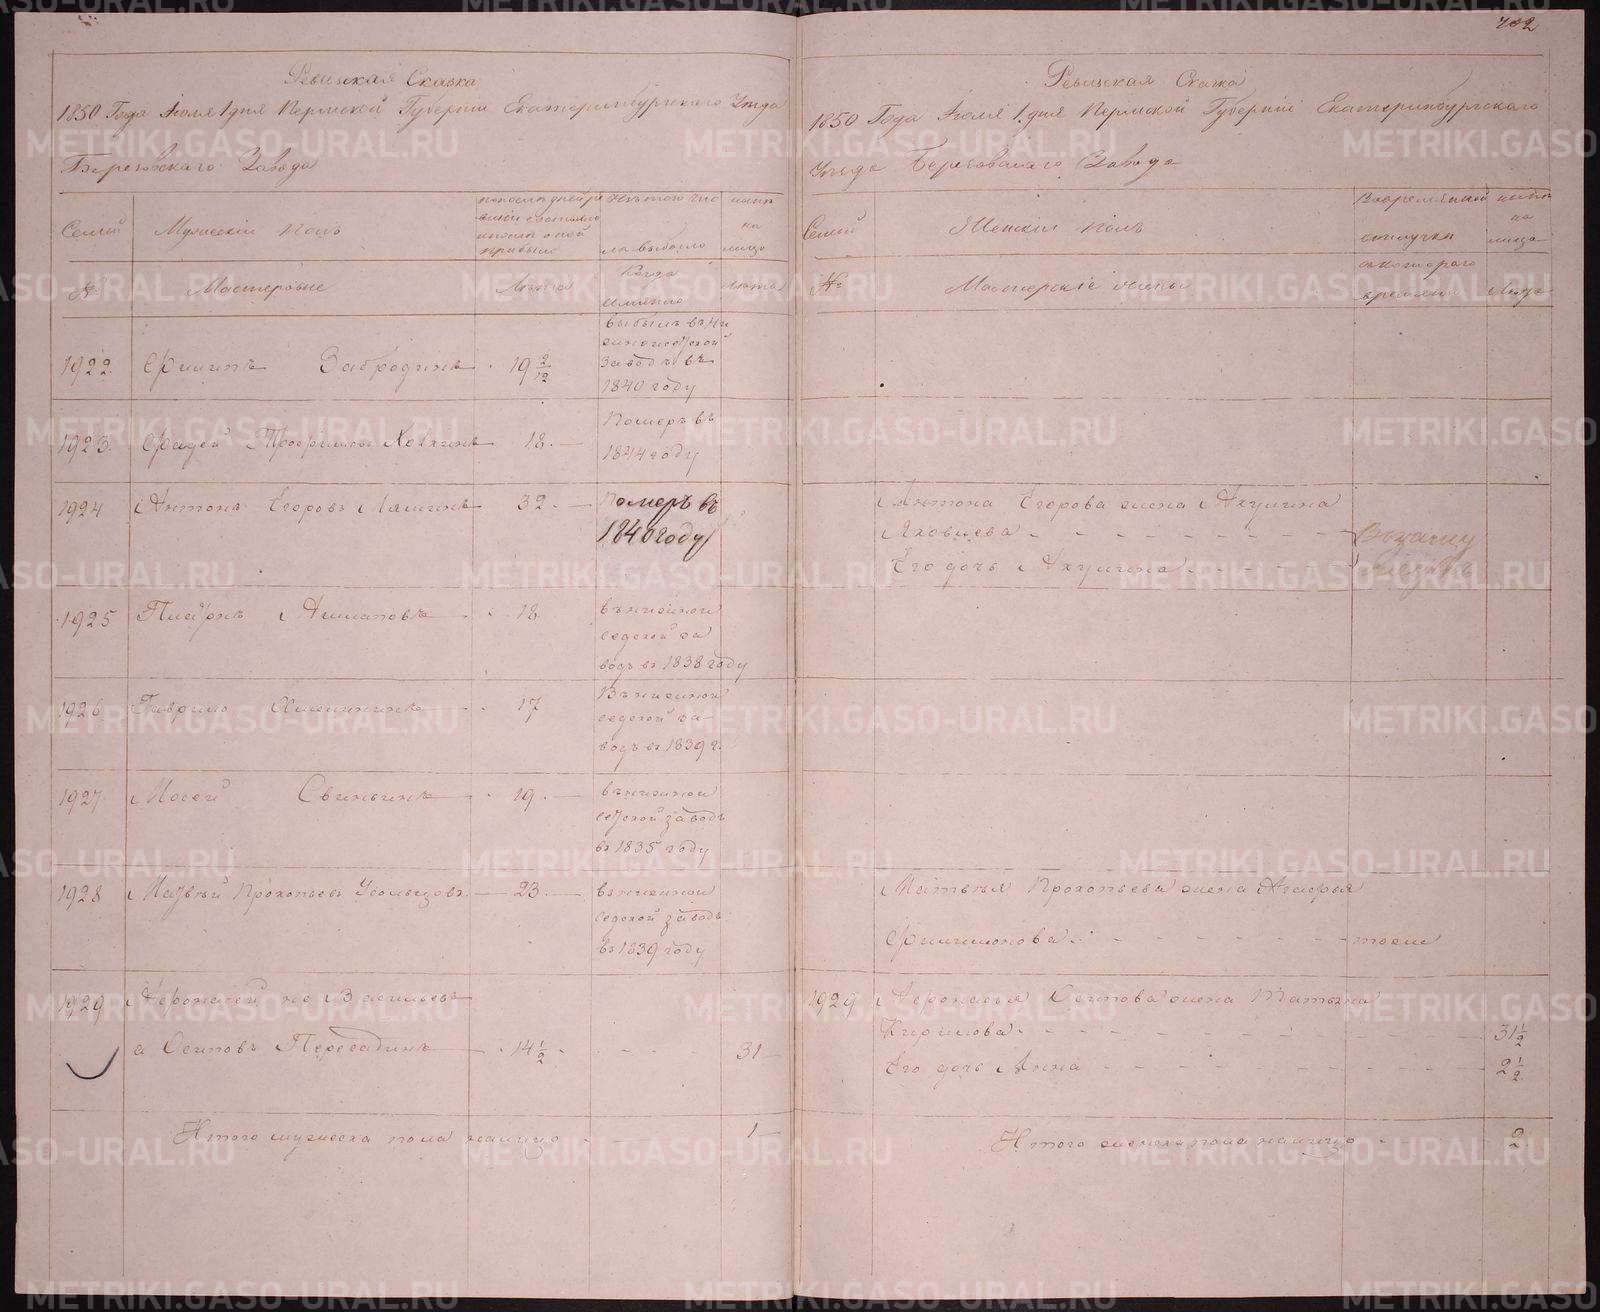 702
Ревизская Сказка
1850 Года Июля 1 дня Пермской Губернии Екатеринбургскаго Уезда
Березовскаго Завода
Семьи
Мужескій полъ
по последней ре
визіи состояло
и после оной
прибыло
Изъ того чис
ла выбыло
ныне
на
лицо
№
Мастеровые
Лѣта
Когда
именно
лѣта
1922
Филипъ Забродинъ
19 2/12
выбылъ въ Ни
жнеисетской
заводъ въ
1840 году
1923
Фадей Трофимовъ
18
Померъ въ
1844 году
1924
Антонъ Егоровъ Ляминъ
32
Померъ въ
1840 году
1925
18
въ нижнеи
седской за
водъ въ 1838 году
1926
Гаврило
17
Въ нижнеи
седской за
водъ въ 1839 г.
1927
Мосей Свиньинъ
19
въ нижнеи
сетской заводъ
въ 1835 году
1928
Матвѣй Прокопьевъ Усольцовъ
23
въ нижнеи
седской заводъ
въ 1839 году
1929
Афонасей не Васильевъ
а Осиповъ Пересадинъ
14 1/2
31
Итого мужеска пола налицо
1
Ревизская Сказка
1850 Года Июля 1 дня Пермской Губерніи Екатеринбургскаго
Уезда Березовскаго Завода
Семьи
Женскій полъ
Во временной
отлучке
ныне
на
лицо
№
Мастерскіе жены
съ котораго
времени
Лѣта
Антона Егорова жена Акулина
Яковлева
Его дочь Акулина
Въ замужестве
Матвѣя Прокопьева жена
Филимонова
тоже
1929
Афонасья Осипова жена Татьяна
Кирилова
31 1/2
Его дочь Анна
2 1/2
Итого женска пола налицо
2
METRIKI.GASO-URAL.RU